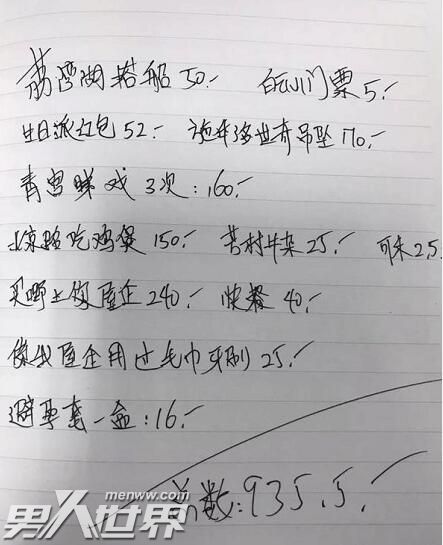 荔湾湖搭船50.- 白云山门票5.-
生日派红包52.- 施华洛世奇吊坠170.-
青宫睇戏3次:160.-
北京路吃鸡煲150.- 芳村牛杂25.- 可乐2.5
买嘢上你屋企240.- 快餐40.-
係我屋企用过毛巾牙刷25.-
避孕套一盒:16.-
总数:935.5.-
menww.com
男人世界